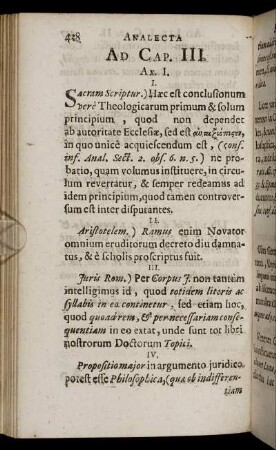 428 ANALECTA
AD CAP. III.
AX. I.
I.
Sacram Scriptur.) Hæc est conclusionum
verè Theologicarum primum & solum
principium, quod non dependet
ab autoritate Ecclesiæ, sed est
in quo unicè acquiescendum est, (conf.
inf. Anal. Sect. 2. obs. 6. n. 5.) ne pro-
batio, quam volumus instituere, in circu-
lum revertatur, & semper redeamus ad
idem principium, quod tamen controver-
sum est inter disputantes.
II.
Aristotelem.) Ramus enim Novator
omnium eruditorum decreto diu damna-
tus, & è scholis proscriptus suit.
III.
Juris Rom.) Per Corpus J. non tantùm
intelligimus id, quod totidem literis ac
syllabis in eo continetur, sed etiam hoc,
quod quoad rem, & per necessariam conse-
quentiam in eo extat, unde sunt tot libri
nostrorum Doctorum Topici.
IV.
Propositio major in argumento juridico
potest esse Philosophica, (quæ ob indifferen-
tiam